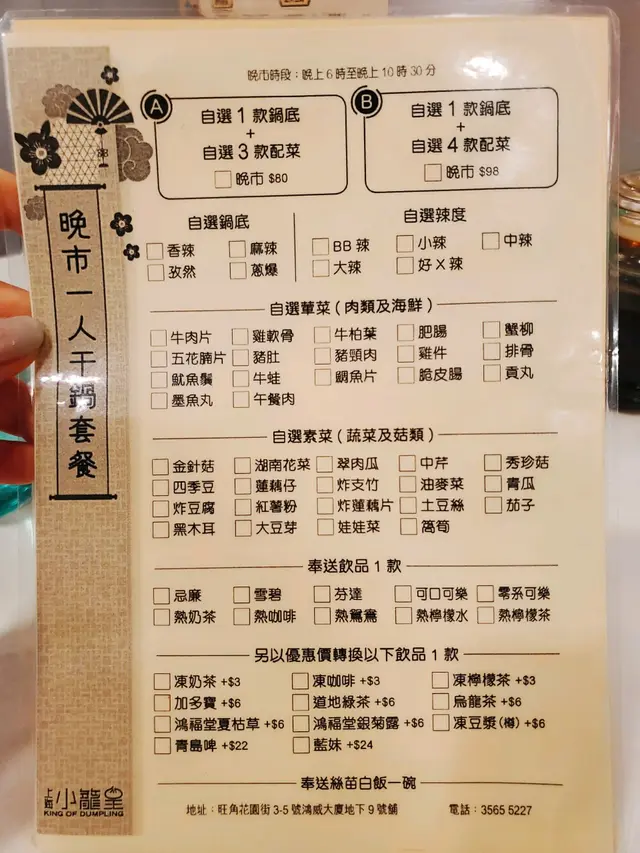 晚市時段：晚上6時至晚上10時30分
A
自選1款鍋底
+
自選3款配菜
晚市 $80
B
自選1款鍋底
+
自選4款配菜
晚市 $98
晚市一人干鍋套餐
自選鍋底
香辣 麻辣
孜然 蔥爆
自選辣度
BB辣 小辣 中辣
大辣 好X辣
自選葷菜(肉類及海鮮)
牛肉片 雞軟骨 牛柏葉 肥腸 蟹柳
五花腩片 豬肚 豬頸肉 雞件 排骨
魷魚鬚 牛蛙 鯛魚片 脆皮腸 貢丸
墨魚丸 午餐肉
自選素菜(蔬菜及菇類)
金針菇 湖南花菜 翠肉瓜 中芹 秀珍菇
四季豆 蓮藕仔 炸支竹 油麥菜 青瓜
炸豆腐 紅薯粉 炸蓮藕片 土豆絲 茄子
黑木耳 大豆芽 娃娃菜 萵筍
奉送飲品1款
忌廉 雪碧 芬達 可口可樂 零系可樂
熱奶茶 熱咖啡 熱鴛鴦 熱檸檬水 熱檸檬茶
另以優惠價轉換以下飲品1款
凍奶茶 +$3 凍咖啡 +$3 凍檸檬茶 +$3
加多寶 +$6 道地綠茶 +$6 烏龍茶 +$6
鴻福堂夏枯草 +$6 鴻福堂銀菊露 +$6 凍豆漿(樽) +$6
青島啤 +$22 藍妹 +$24
奉送絲苗白飯一碗
小龍皇
KING OF DUMPLING
地址：旺角花園街3-5號鴻威大廈地下9號舖 電話：3565 5227